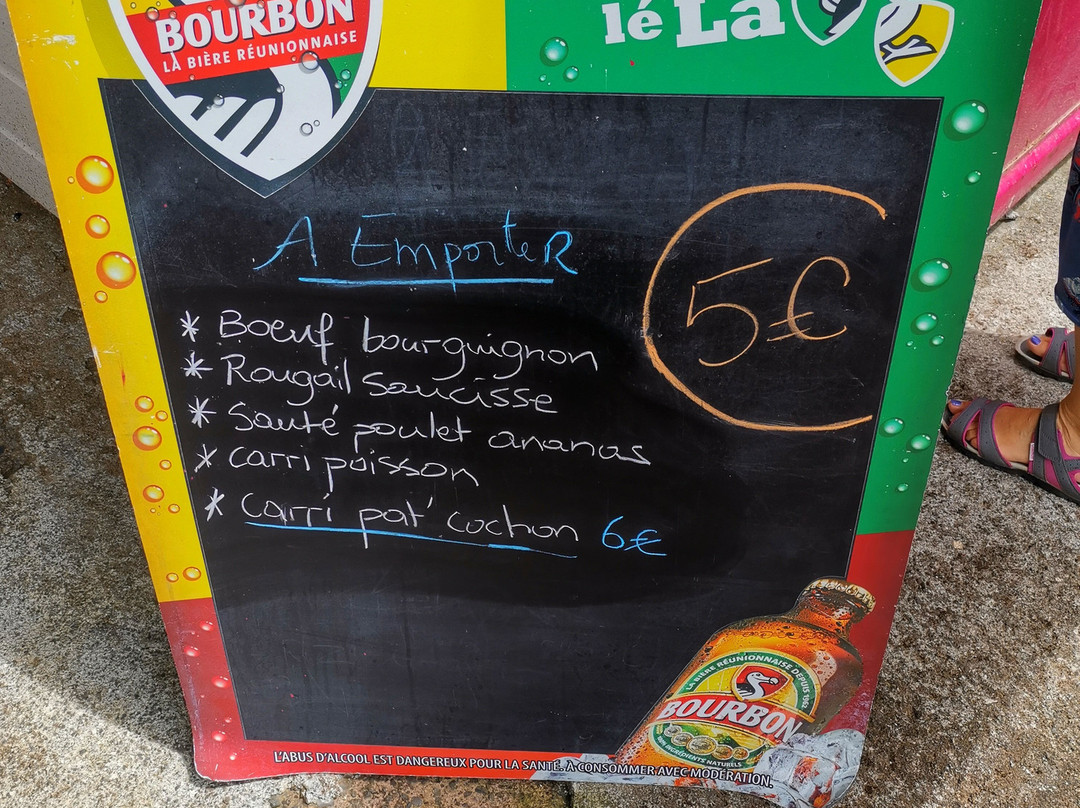 BOURBON
LA BIÈRE RÉUNIONNAISE
lé La
A EmporteR
5€
* Boeuf bourguignon
* Rougail saucisse
* Sauté poulet ananas
* carri poisson
* carri pat' cochon 6€
LA BIÈRE RÉUNIONNAISE DEPUIS 1962
BOURBON
100% INGRÉDIENTS NATURELS
L'ABUS D'ALCOOL EST DANGEREUX POUR LA SANTÉ. À CONSOMMER AVEC MODÉRATION.